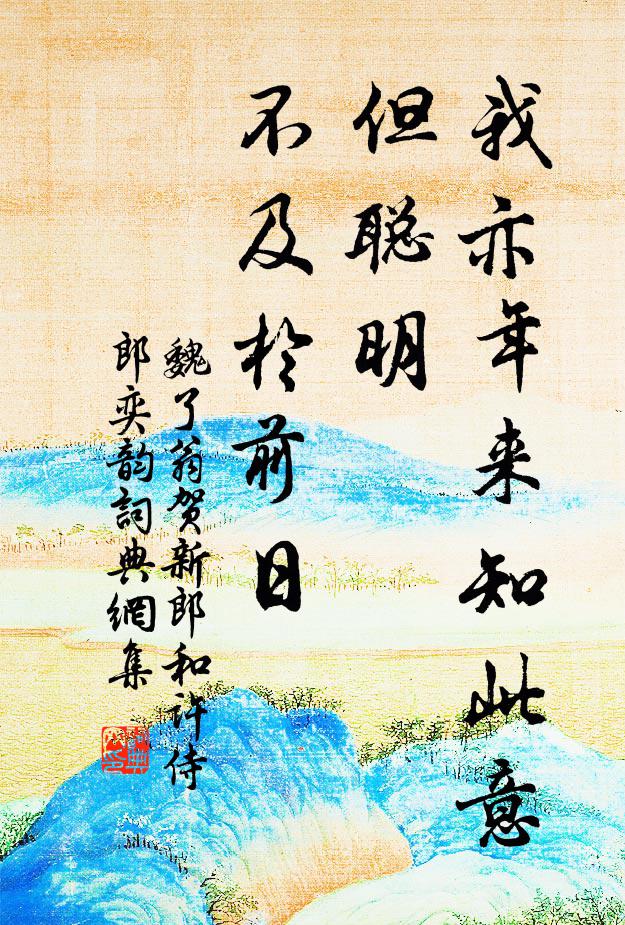 我亦年来知此意
但聪明
不及於前日
魏了翁贺新郎和许侍
郎奕韵詞典網集